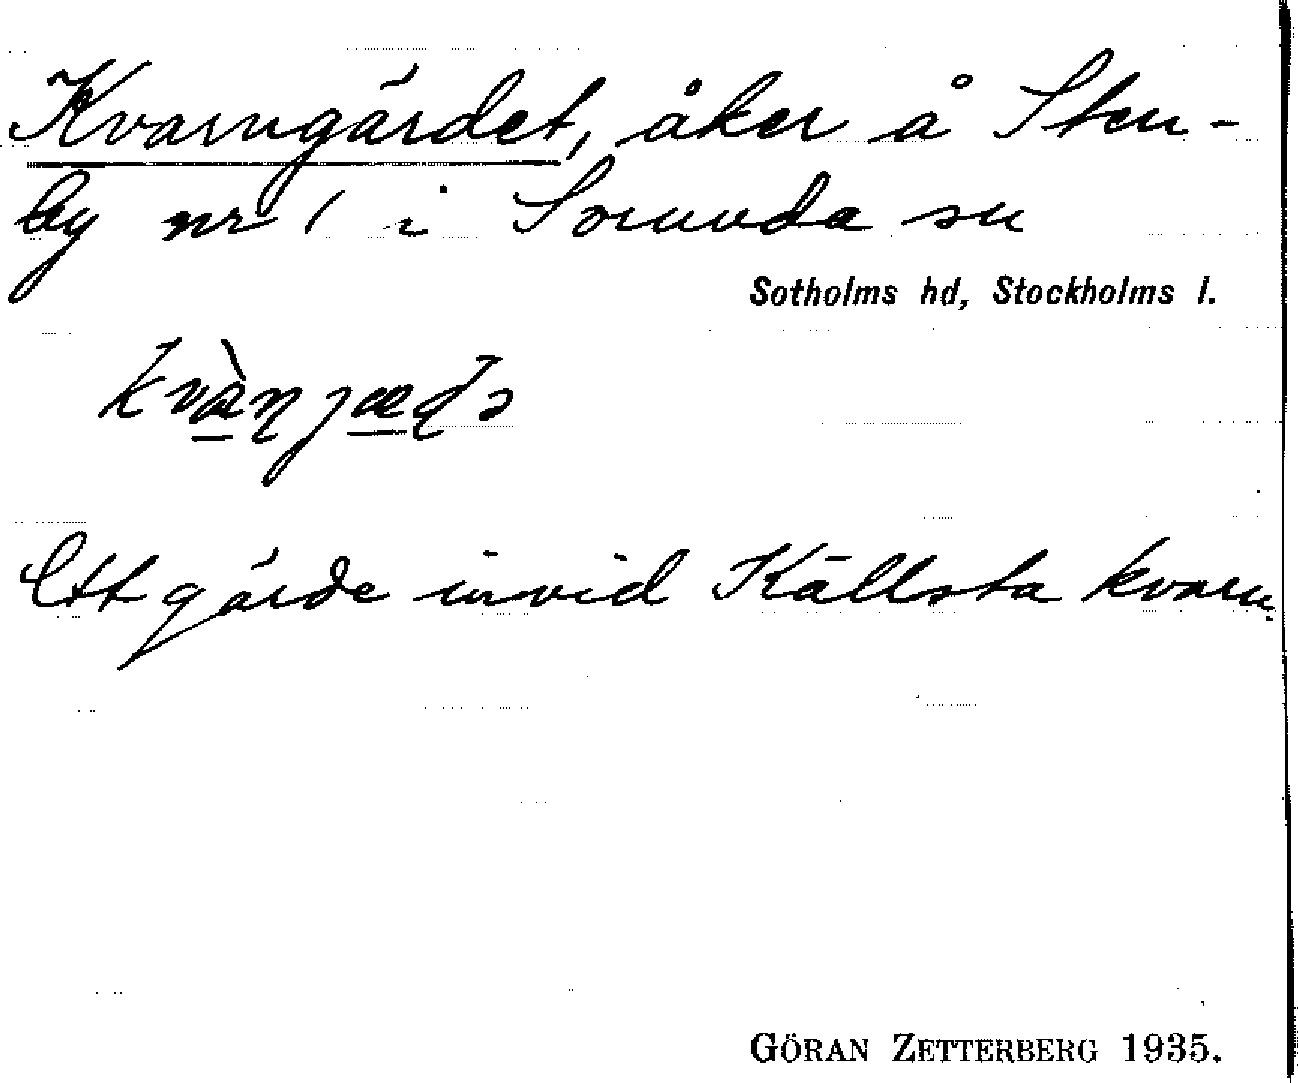 Kvarngärdet, åker å Sten-
by nr 1 i Sorunda sn
Sotholms hd, Stockholms l.
Ett gärde invid Källsta kvarn.
GÖRAN ZETTERBERG 1935.